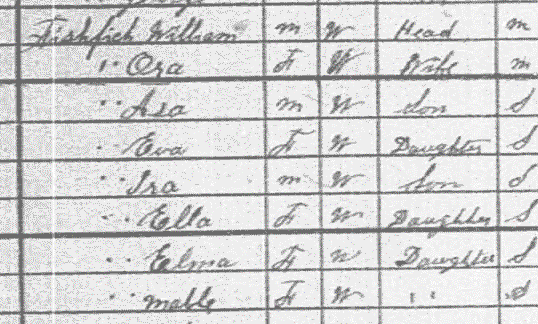 Fishfich William m W Head m
" Ora F W Wife m
" Asa m W Son S
" Eva F W Daughter S
" Ira m W Son S
" Ella F W Daughter S
" Elma F W Daughter S
" mable F W " S